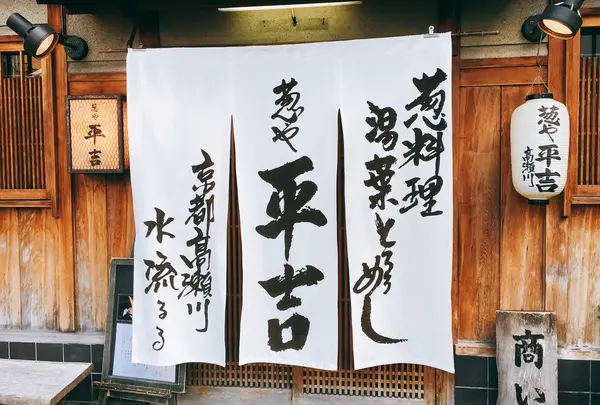 葱料理
湯葉とろめし
葱や
平吉
京都高瀬川
水流るる
葱や
平吉
葱や平吉
高瀬川
商い